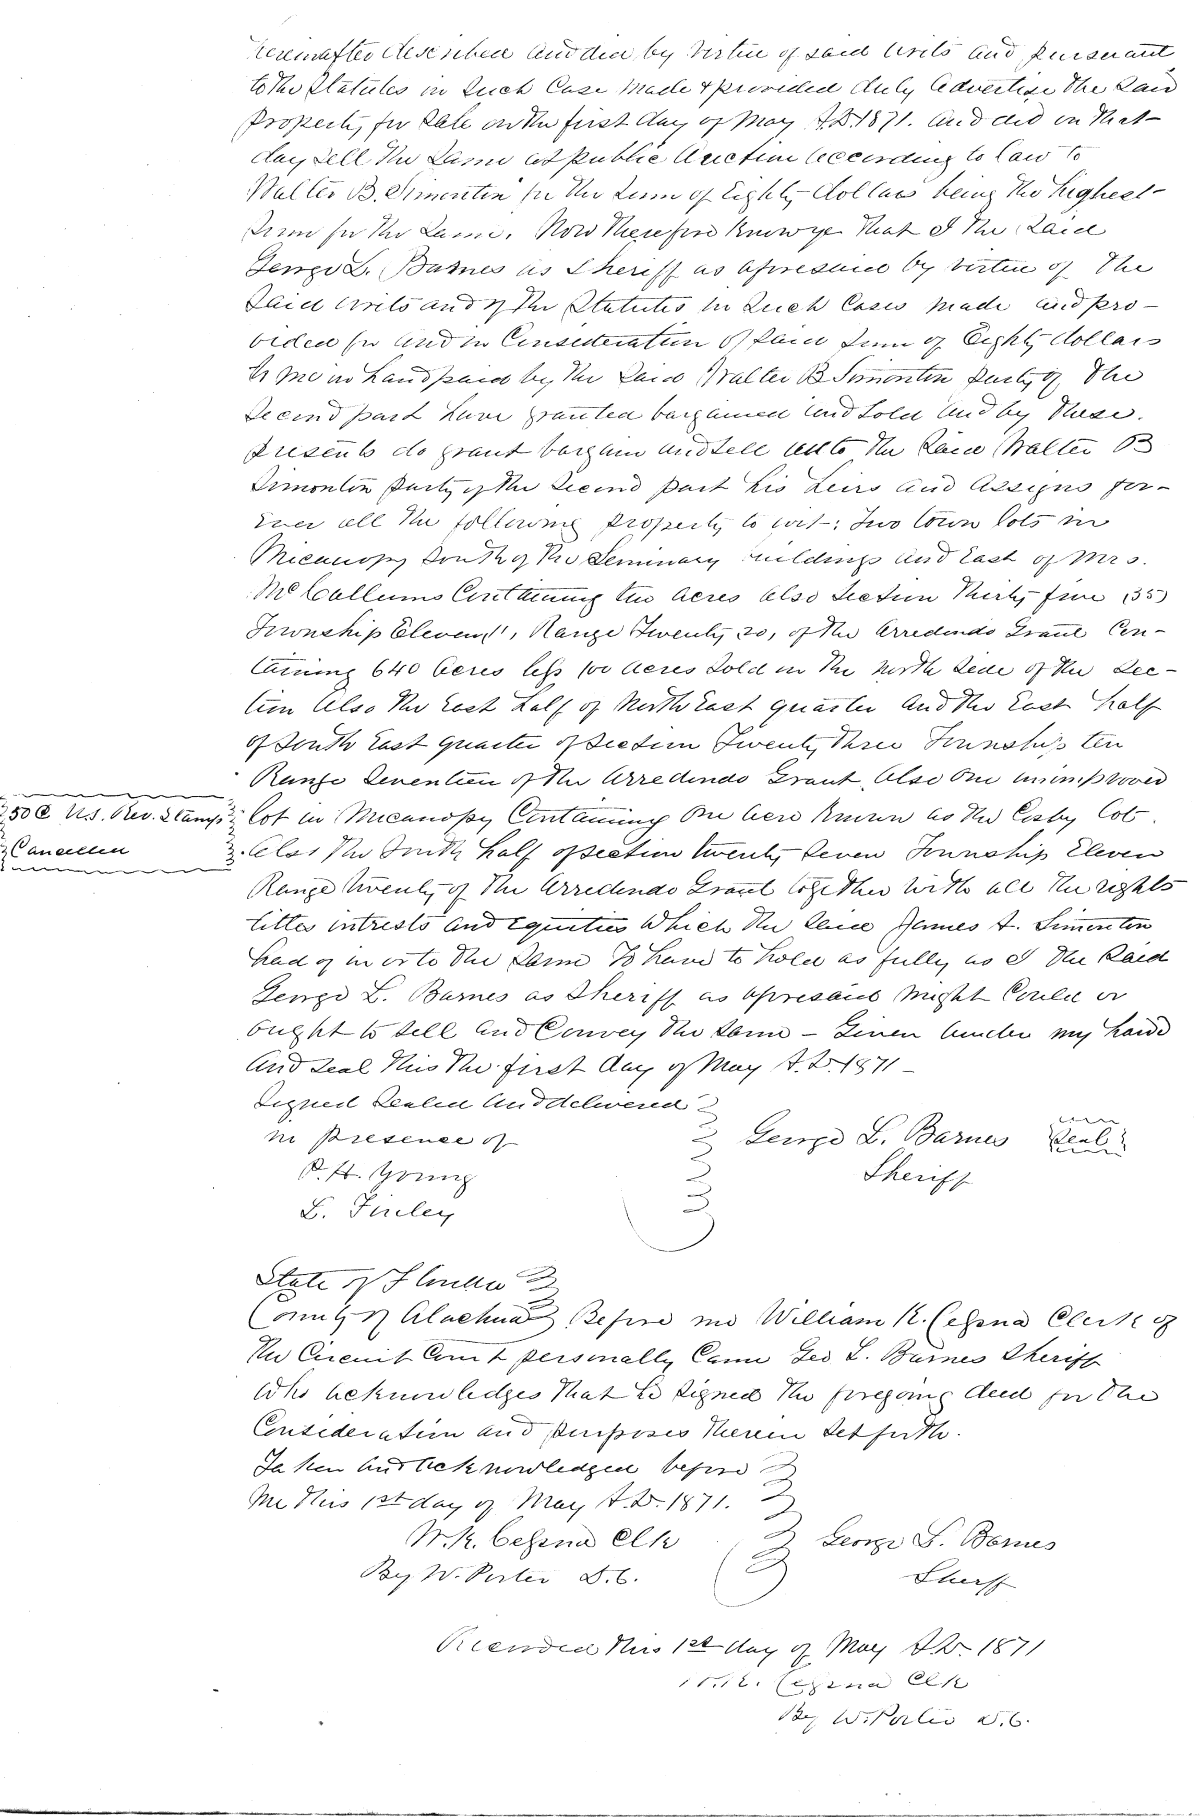 hereinafter described and did by virtue of said writs and pursuant
to the Statutes in such Case made & provided duly advertise the said
Property for sale on the first day of May A.D. 1871. and did on that
day sell the same at public Auction according to law to
Walter B. Simonton for the sum of Eighty dollars being the highest
sum for the same. Now Therefore Know ye that I the said
George L. Barnes as Sheriff as aforesaid by virtue of the
said writs and of the Statutes in such Cases made and pro-
vided for and in Consideration of said sum of Eighty dollars
to me in hand paid by the said Walter B Simonton party of the
second part have granted bargained and sold and by these
presents do grant bargain and sell unto the said Walter B
Simonton party of the second part his heirs and assigns for-
ever all the following property to wit: Two town lots in
Micanopy South of the Seminary buildings and East of Mrs.
McCallums Containing ten acres also Section Thirty five (35)
Township Eleven 11, Range Twenty 20, of the Arredondo Grant Con-
taining 640 acres less 100 acres sold on the north side of the Sec-
tion Also the East half of North East quarter and the East half
of South East quarter of Section Twenty Three Township ten
Range Seventeen of the Arredondo Grant. Also one unimproved
50¢ U.S. Rev. Stamps
Cancelled
lot in Micanopy Containing one acre Known as the Lot.
Also the South half of section twenty Seven Township Eleven
Range twenty of the Arredondo Grant together with all the rights
titles intrests and equities which the said James A. Simonton
had of in or to the same To have to hold as fully as I the said
George L. Barnes as Sheriff as aforesaid might Could or
ought to sell and Convey the same – Given under my hand
and seal this the first day of May A.D. 1871 –
Signed Sealed and delivered
in presence of
George L. Barnes Seal
P. H. Young
Sheriff
L. Finley
State of Florida
County of Alachua Before me William K. Cessna Clerk of
the Circuit Court personally Came Geo L. Barnes Sheriff
who acknowledges that he signed the foregoing deed for the
Consideration and purposes therein set forth.
Taken and acknowledged before
me this 1st day of May A.D. 1871.
W. K. Cessna Clk
George L. Barnes
By W. Porter D.C.
Sheriff
Recorded this 1st day of May A.D. 1871
W.K. Cessna Clk
By W. Porter D.C.